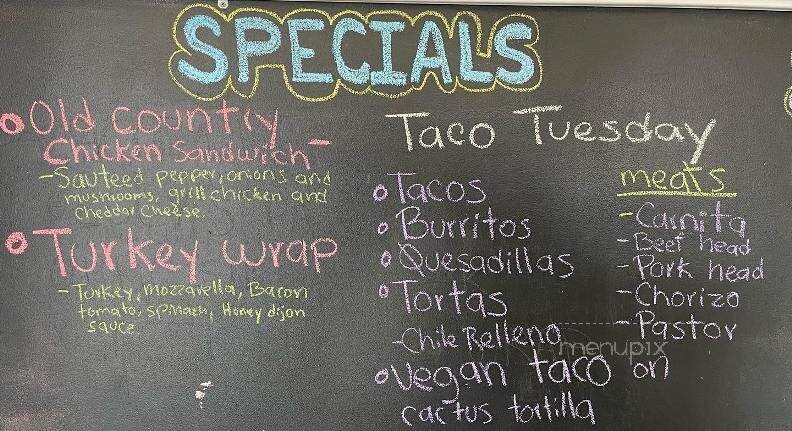 SPECIALS
Old country
Chicken Sandwich -
- Sauteed pepper, onions and
mushrooms, grill chicken and
cheddar cheese.
Turkey wrap
- Turkey, mozzarella, Bacon
tomato, spinach, Honey dijon
sauce
Taco Tuesday
Tacos
Burritos
Quesadillas
Tortas
- Chile Relleno
Vegan taco on
cactus tortilla
meats
- Carnita
- Beef head
- Pork head
- Chorizo
- Pastor
menupix